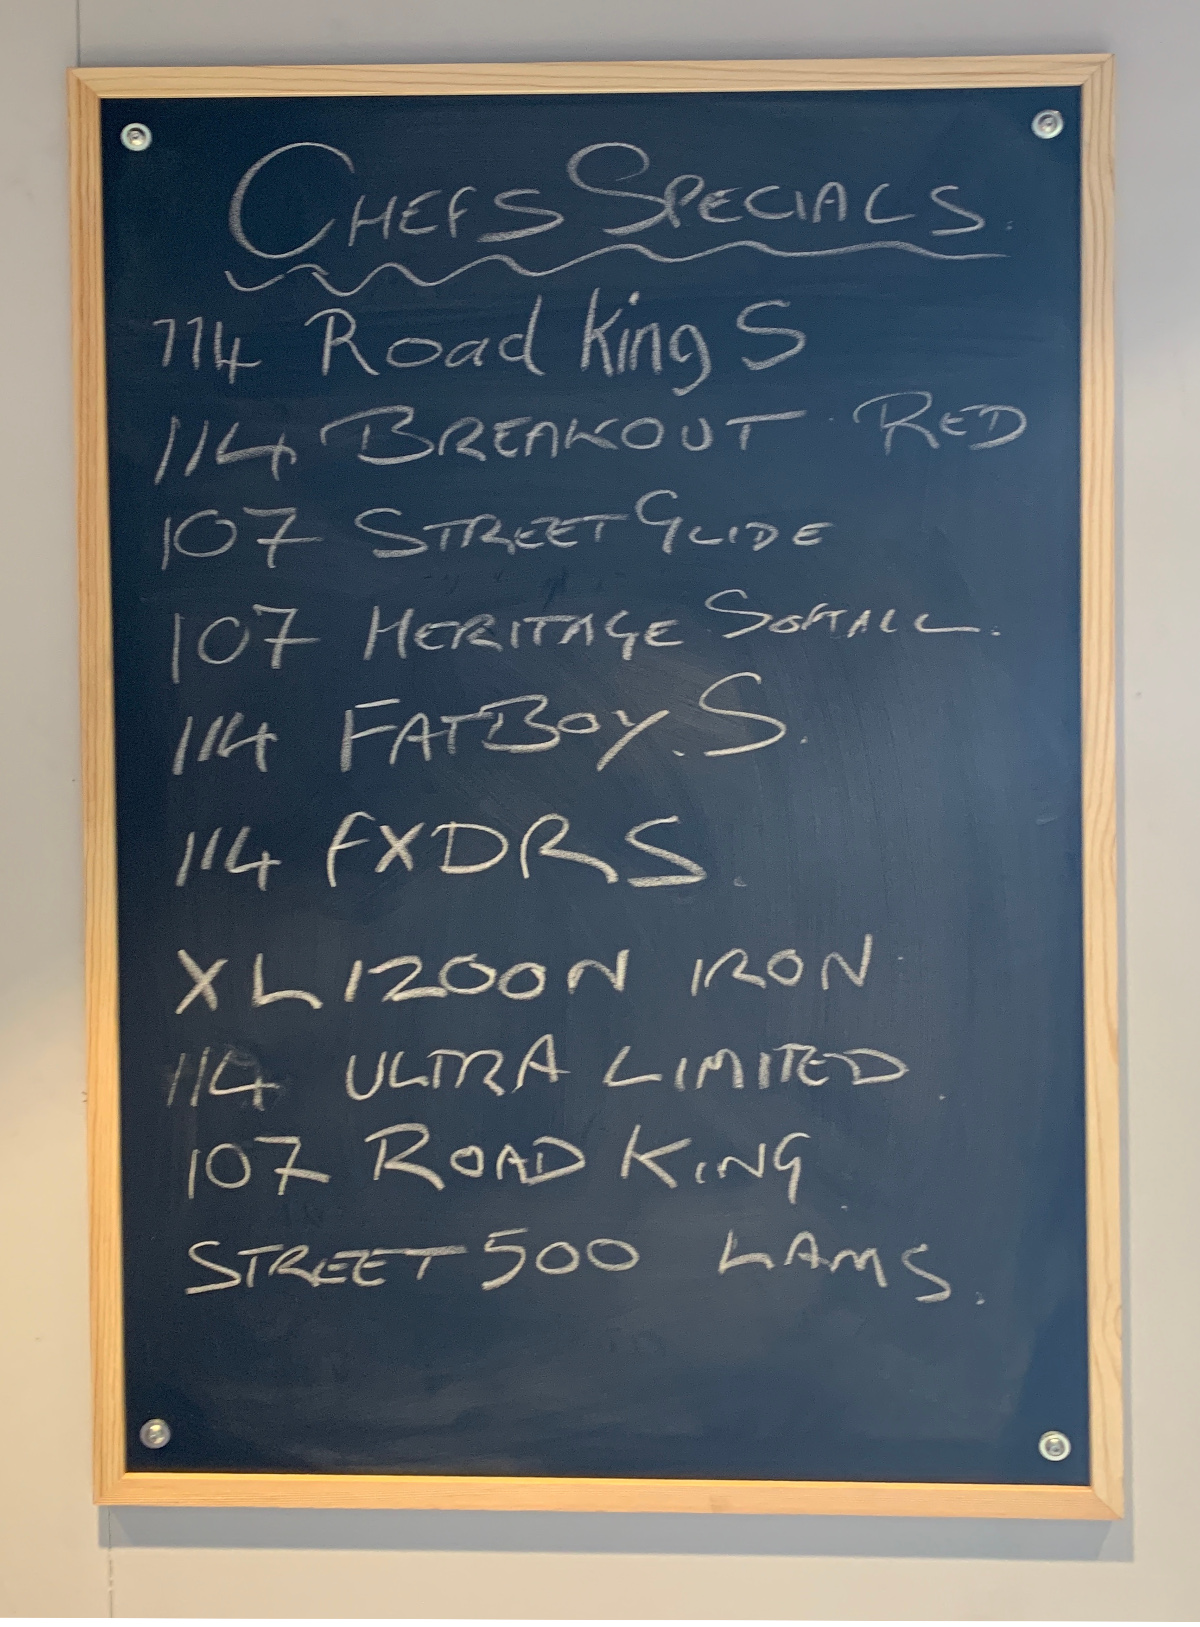 CHEFS SPECIALS.
114 Road King S
114 BREAKOUT RED
107 STREET GLIDE
107 HERITAGE SOFTAIL.
114 FATBOY. S.
114 FXDR S.
XL1200N IRON
114 ULTRA LIMITED.
107 ROAD KING
STREET 500 LAMS.